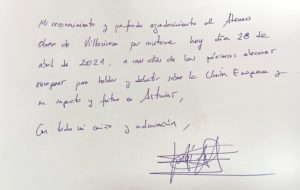 Mi reconocimiento y profundo agradecimiento al Ateneo
Obrero de Villaviciosa por invitarme hoy día 28 de
abril de 2021, a unos días de las próximas elecciones
europeas para hablar y debatir sobre la Unión Europea y
su impacto y futuro en Asturias,
Con todo mi cariño y admiración,